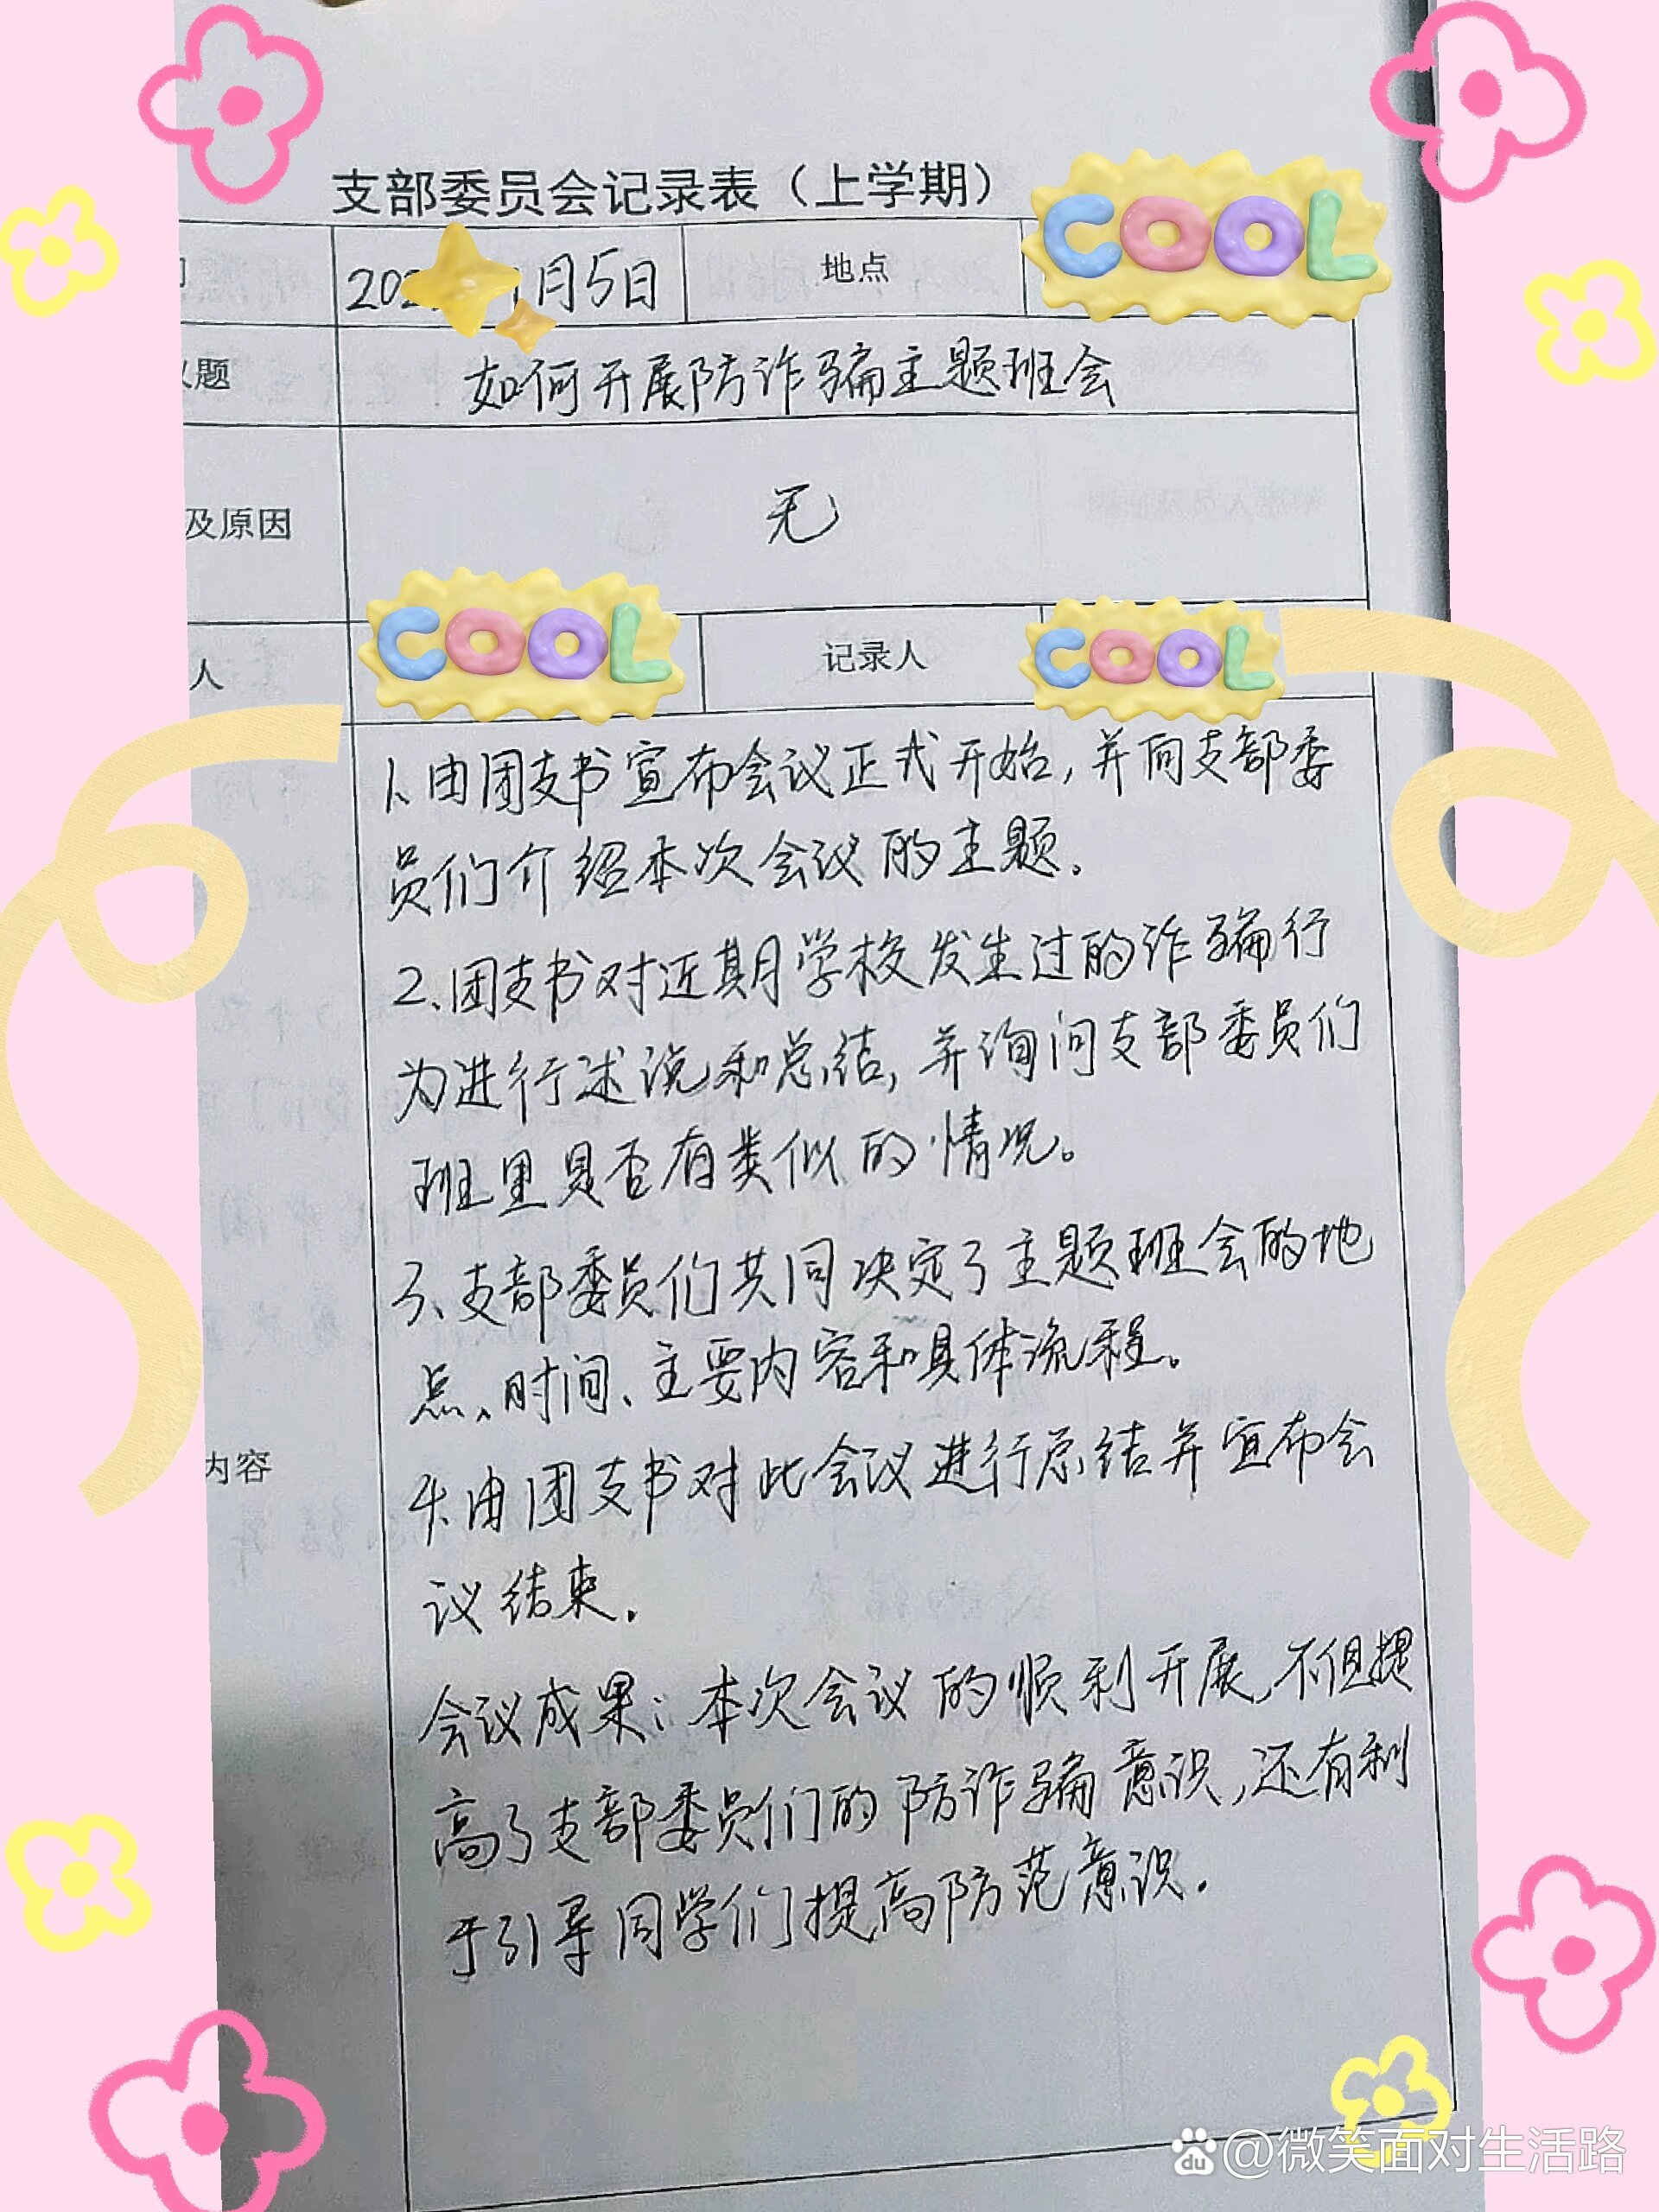 支部委员会记录表（上学期）
COOL
202 月5日 地点
议题 如何开展防诈骗主题班会
及原因 无
COOL 记录人 COOL
人
1、由团支书宣布会议正式开始，并向支部委
员们介绍本次会议的主题。
2、团支书对近期学校发生过的诈骗行
为进行述说和总结，并询问支部委员们
班里是否有类似的情况。
3、支部委员们共同决定了主题班会的地
点、时间、主要内容和具体流程。
内容
4、由团支书对此会议进行总结并宣布会
议结束。
会议成果：本次会议的顺利开展，不但提
高了支部委员们的防诈骗意识，还有利
于引导同学们提高防范意识。
du @微笑面对生活路